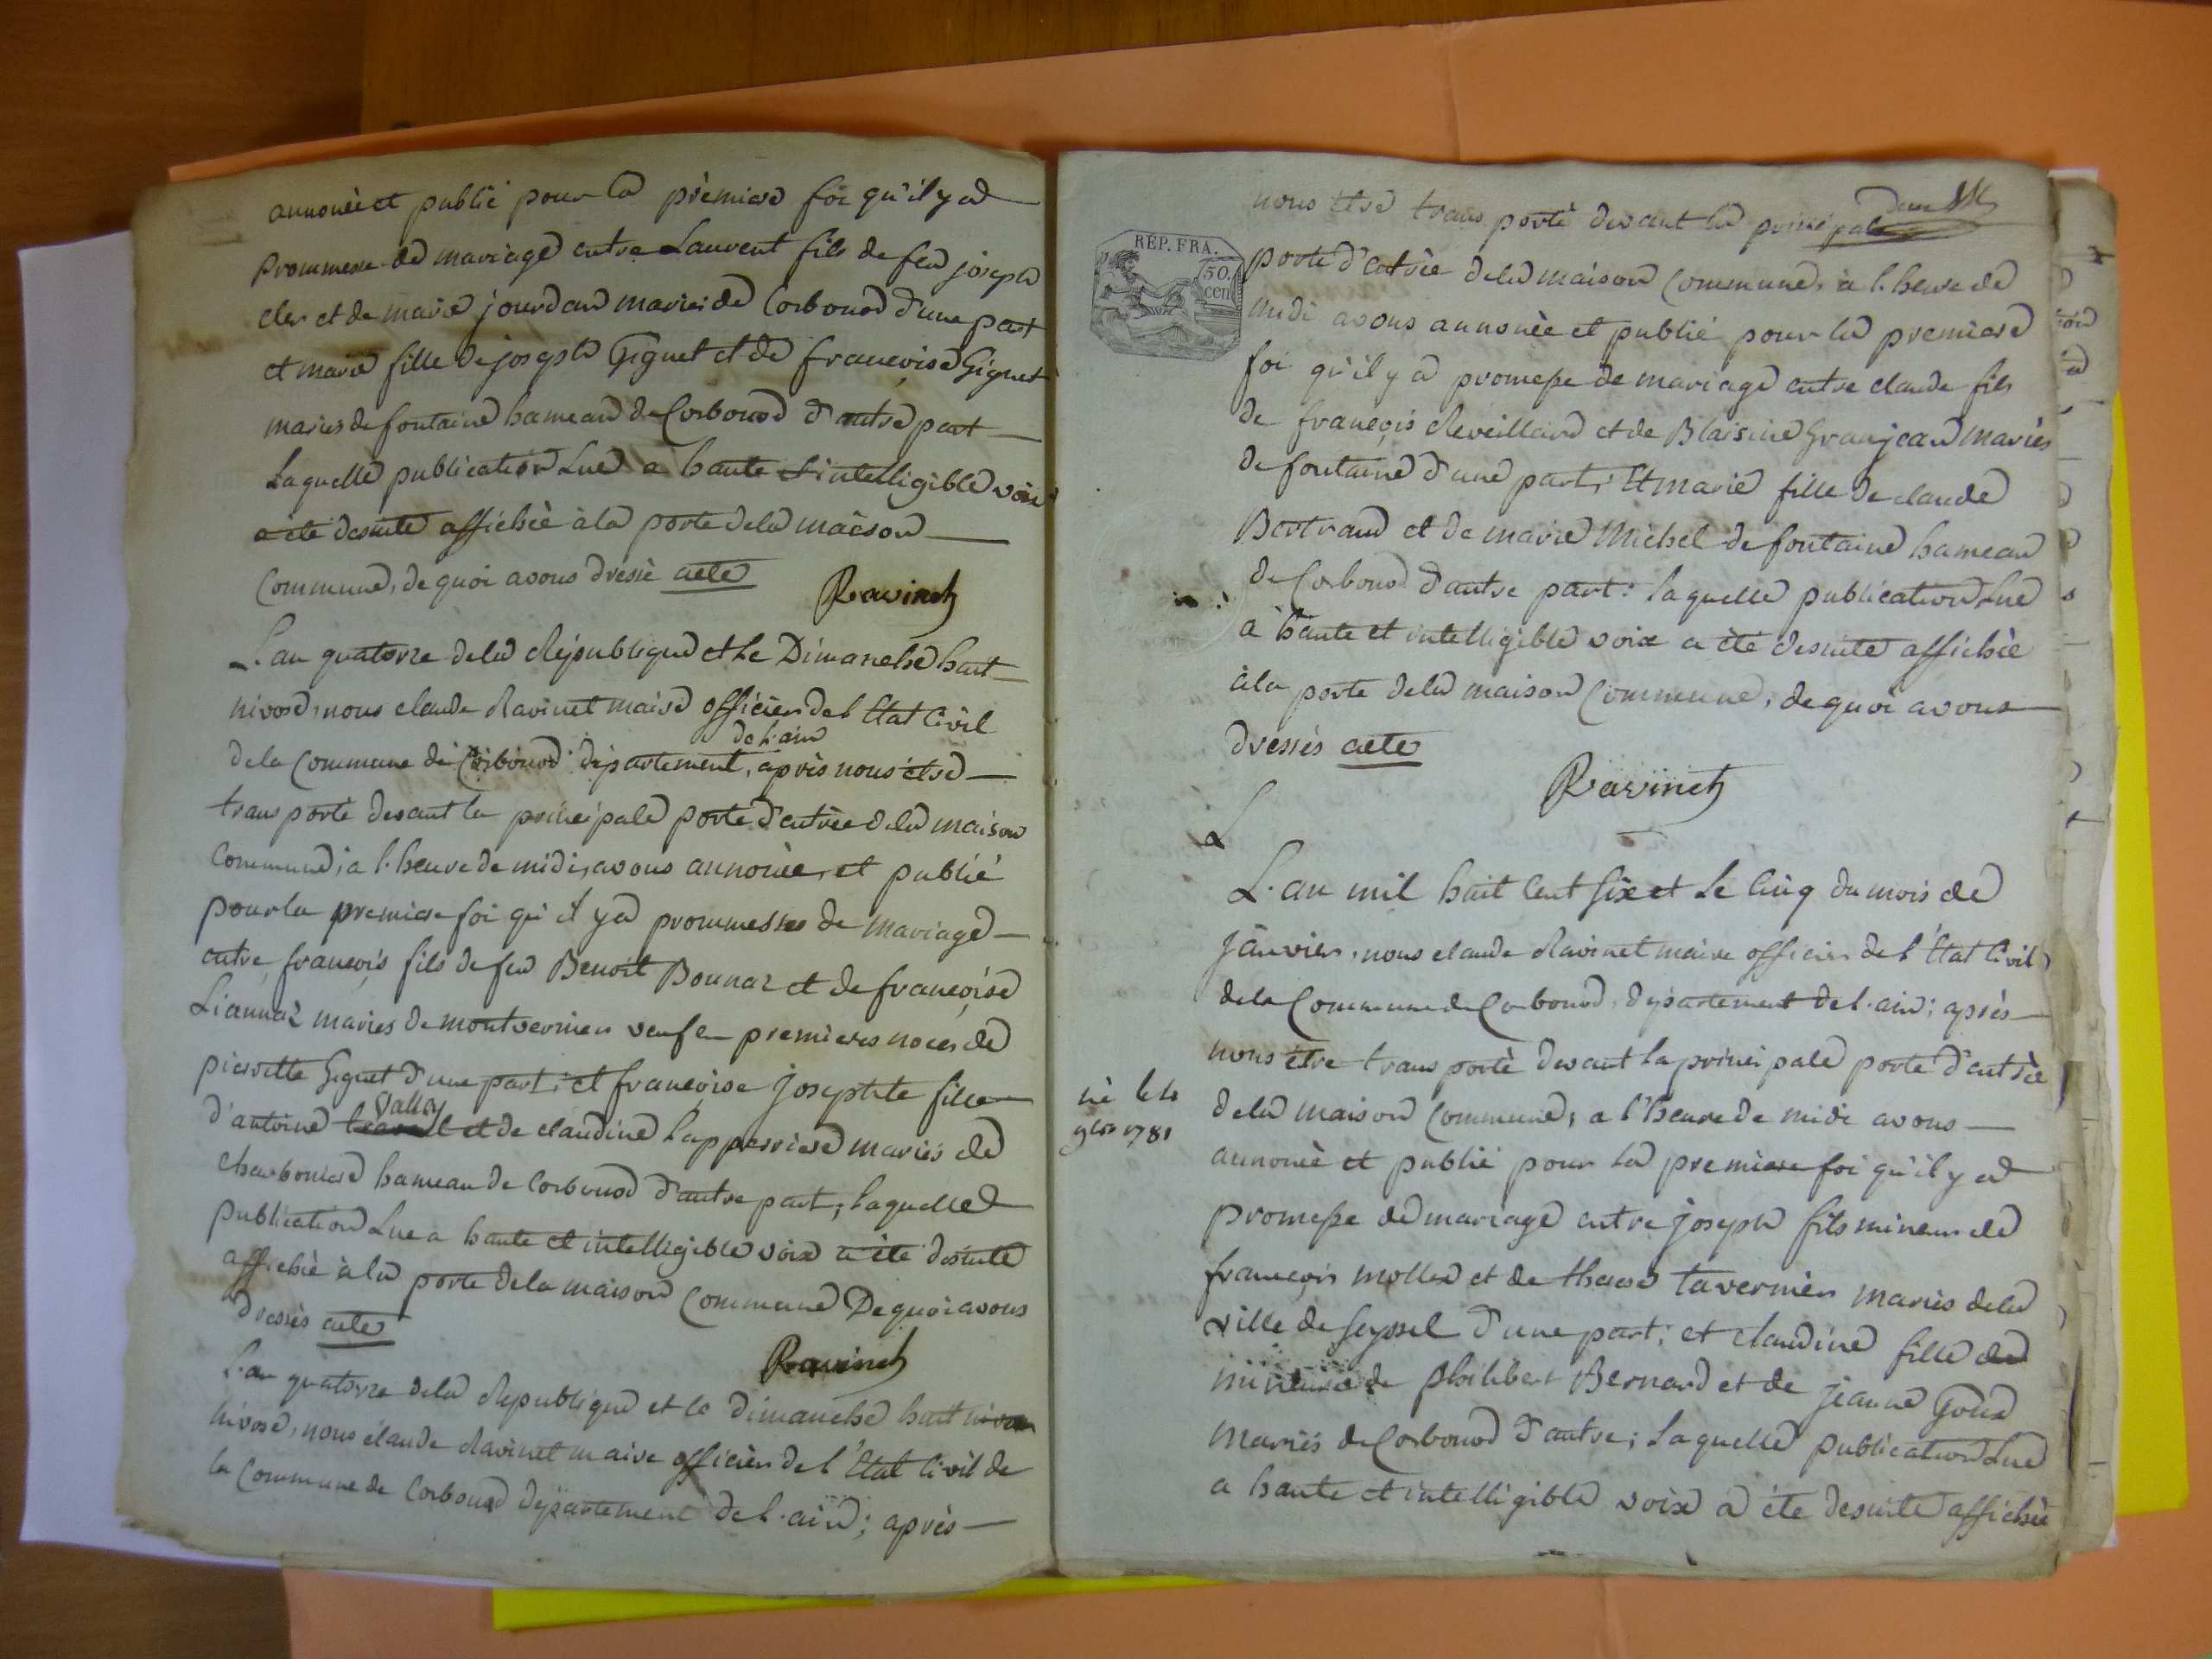 annoncé et publié pour la première foi qu'il y a
prommesse de mariage entre Laurent fils de feu joseph
cler et de marie jourdan mariés de Corbonod d'une part
et marie fille de joseph Gignet et de françoise Gignet
mariés de fontaine hameau de Corbonod d'autre part
Laquelle publication Lue a haute et intelligible voix
a été desuite affichée à la porte dela maison
Commune, de quoi avons dressé acte
Ravinet
L'an quatorze dela République et Le Dimanche huit
nivose, nous claude Ravinet maire officier de l'Etat Civil
de la Commune de Corbonod département, après nous être
de l'ain
transporté devant la principale porte d'entrée dela maison
Commune, a l'heure de midi, avons annoncée et publié
pour la premiere foi qu'il y a prommesses de mariage
entre françois fils de feu Benoit Bonnaz et de françoise
Liannaz mariés de montvernier veuf en premieres noces de
pierrette Gignet d'une part; et françoise josephte fille
Vallay
d'antoine et de claudine Lapperriere mariés de
charboniere hameau de Corbonod d'autre part, laquelle
publication Lue a haute et intelligible voix a été desuite
affiché à la porte dela maison Commune De quoi avons
dressés acte
Ravinet
L'an quatorze dela République et le Dimanche huit nivose
nivose, nous claude Ravinet maire officier de l'Etat Civil de
la Commune de Corbonod département de l'ain; après
nous être transporté devant la principale
REP. FRA.
50.
cen
porte d'entrée dela maison Commune, à l'heure de
midi avons annoncée et publié pour la premiere
foi qu'il y a promesse de mariage entre claude fils
de françois Reveillard et de Blaisine Granjean mariés
de fontaine d'une part; Et marie fille de claude
Bertrand et de marie Michel de fontaine hameau
de Corbonod d'autre part: laquelle publication Lue
à haute et intelligible voix a été desuite affichée
à la porte dela maison Commune, de quoi avons
dressés acte
Ravinet
L
L'an mil huit Cent six et Le Cinq du mois de
janvier, nous claude Ravinet maire officier de l'Etat Civil
dela Commune de Corbonod, département de l'ain; après
nous être transporté devant la principale porte d'entrée
né le 4
9bre 1781
dela maison Commune, a l'heure de midi avons
annoncé et publié pour la premiere foi qu'il y a
promesse de mariage entre joseph fils mineur de
françois mollex et de therese tavernier mariés dela
ville de seyssel d'une part; et claudine fille de
mineure de philibert Bernard et de jeanne Goux
mariés de Corbonod d'autre; Laquelle publication Lue
a haute et intelligible voix a été desuite affichée